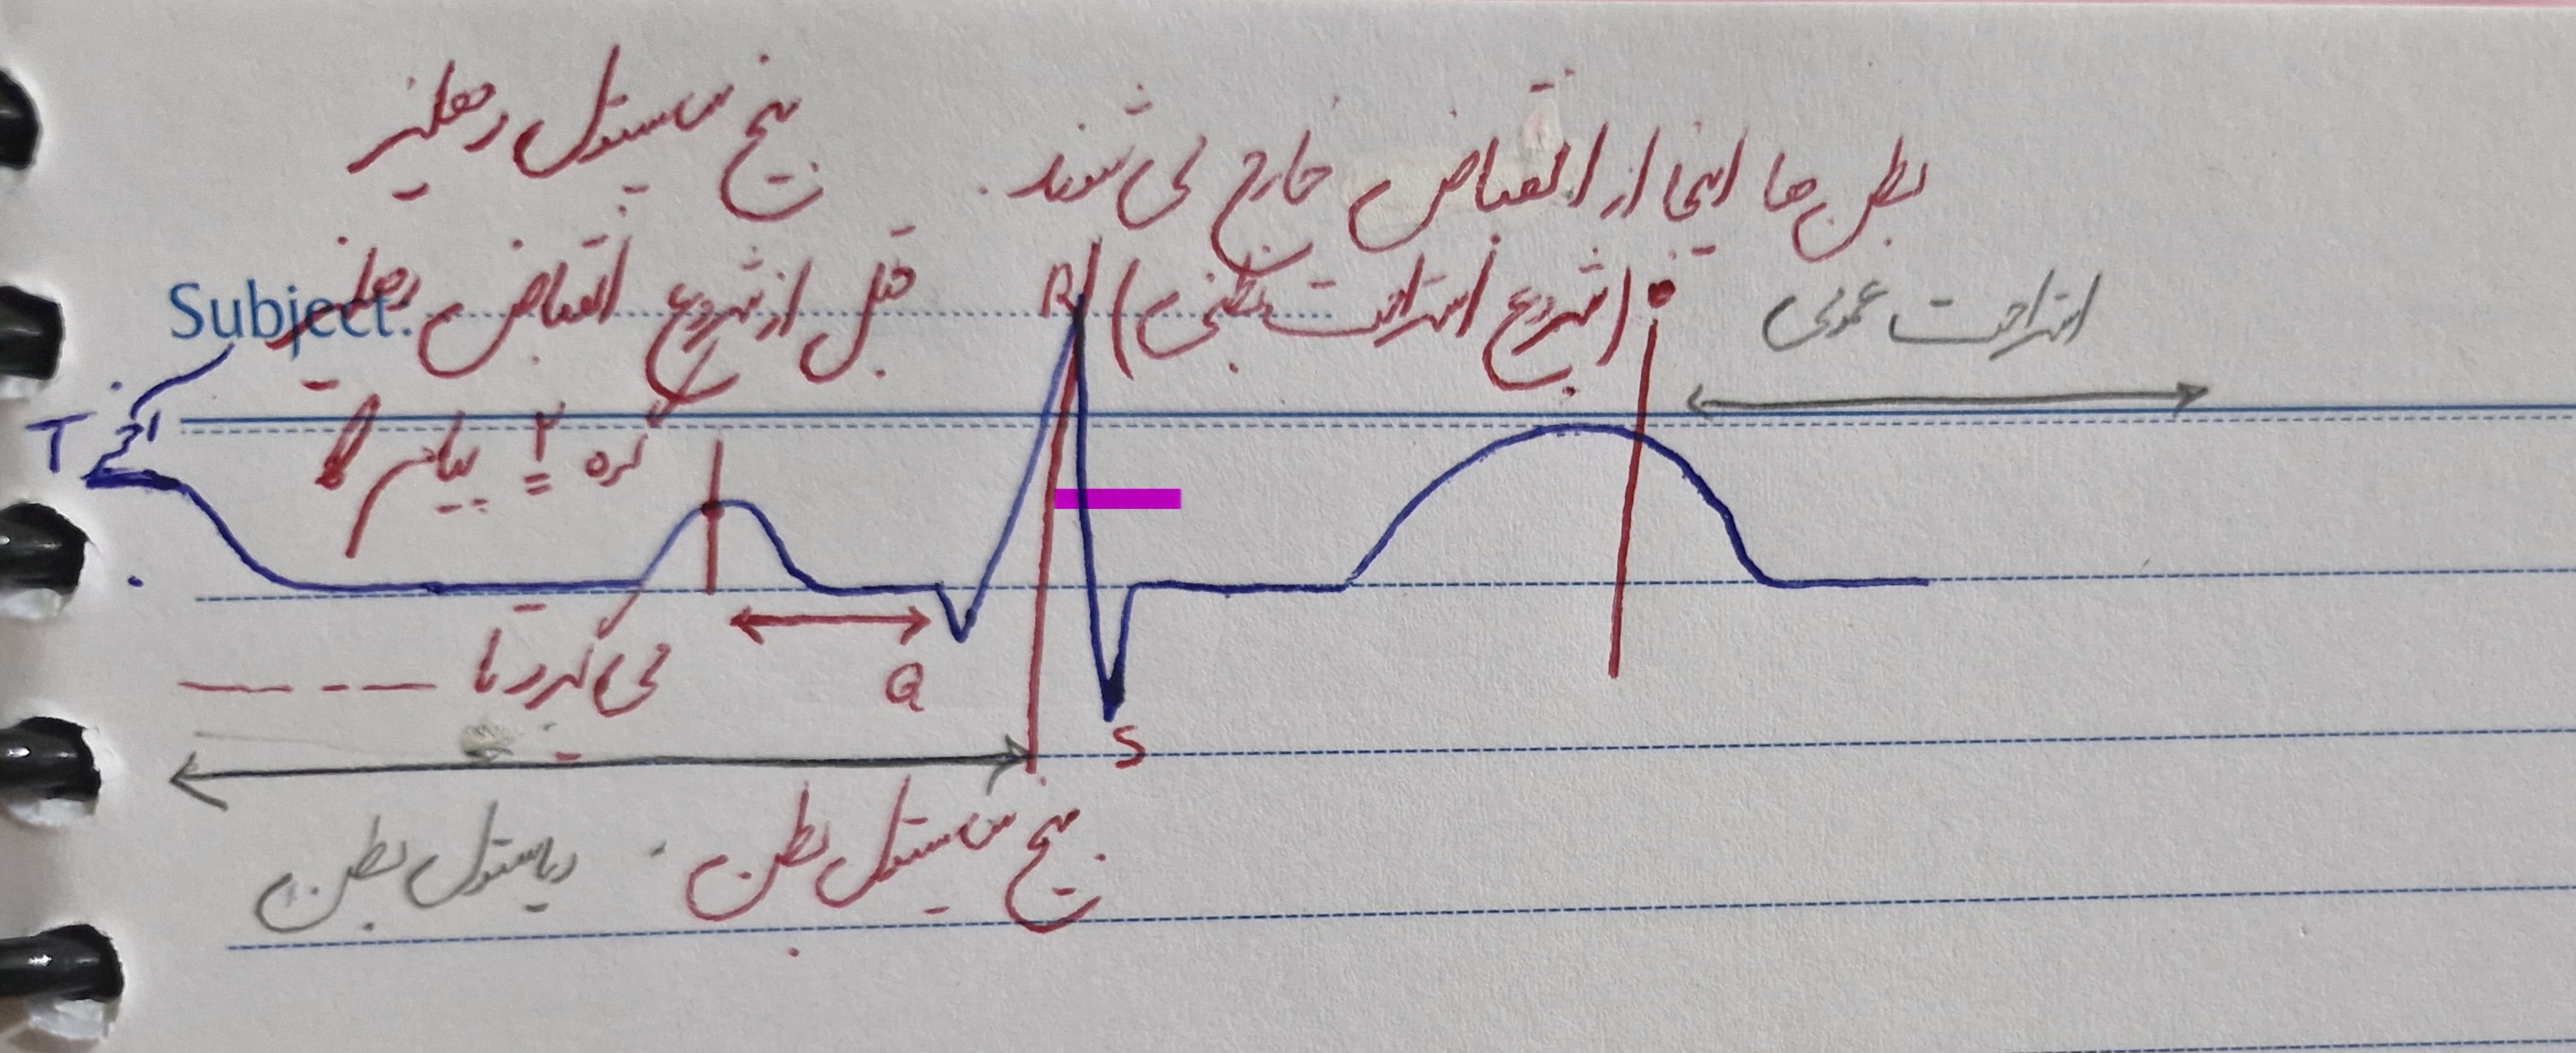 بطن ها اینجا از انقباض خارج می شوند.
(شروع استراحت بطنی)
استراحت عمومی
پیج سیستول دهلیزی
قبل از شروع انقباض دهلیزی
گره ۲ پیام را
می گیرد تا
Subject:
T
R
Q
S
سیستول بطن
دیاستول بطن